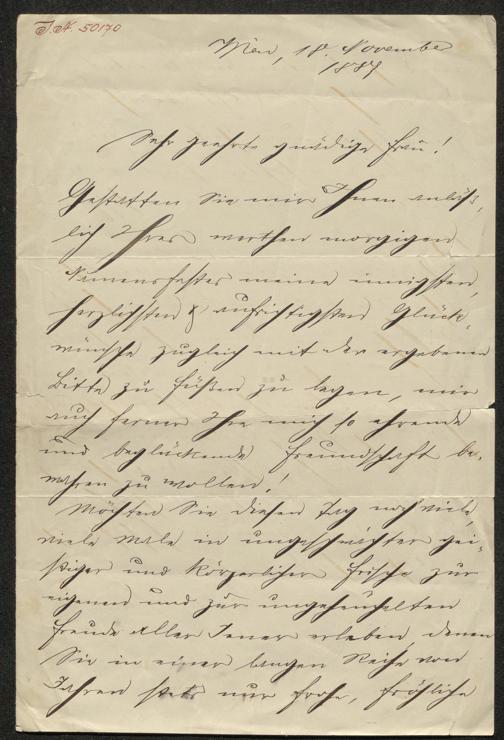 J.N. 50170
Wien, 18. November
1887
Sehr geehrte gnädige Frau!
Gestatten Sie mir Ihnen anläss-
lich Ihres werthen morgigen
Namensfestes meine innigsten,
herzlichsten & aufrichtigsten Glück-
wünsche zugleich mit der ergebenen
Bitte zu Füßen zu legen, mir
auch ferner Ihre mich so ehrende
und beglückende Freundschaft be-
wahren zu wollen!
Möchten Sie diesen Tag noch viele,
viele Male in ungeschwächter gei-
stiger und körperlicher Frische zur
eigenen und zur ungeheuchelten
Freude aller Jener erleben, denen
Sie in einer langen Reihe von
Jahren stets nur frohe, fröhliche